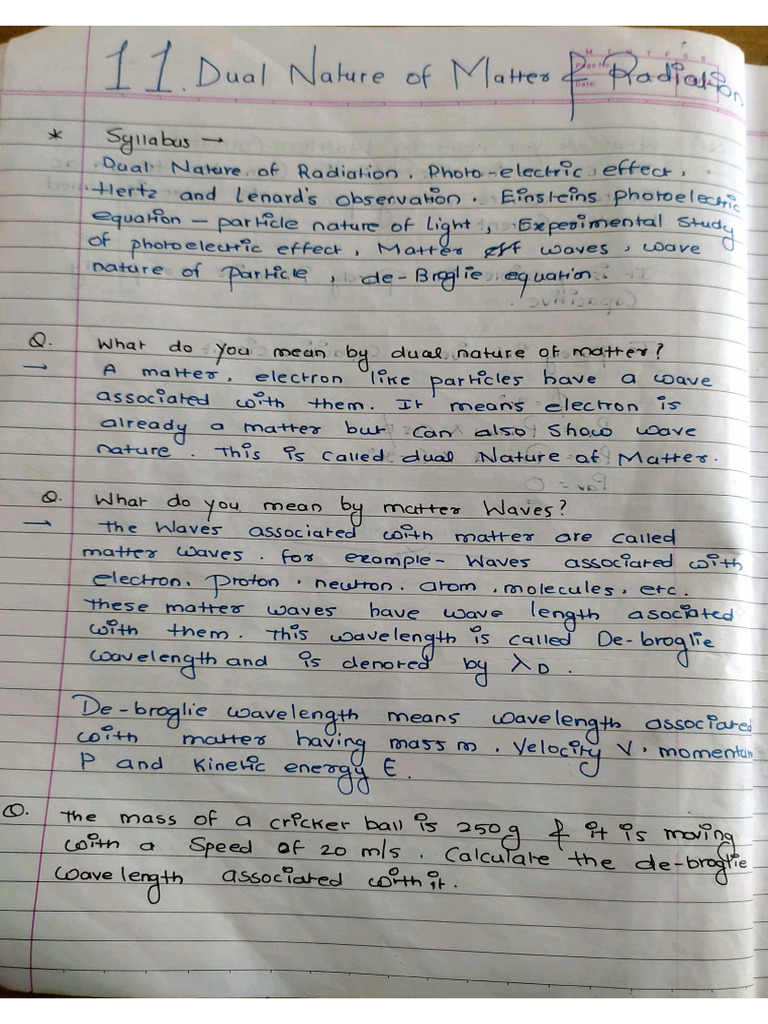 11. Dual Nature of Matter & Radiation
M T W T F S S
Page No.:
Date:
* Syllabus →
Dual Nature of Radiation. Photo-electric effect,
Hertz and Lenard's observation. Einsteins photoelectric
equation - particle nature of light, Experimental Study
of photoelectric effect, Matter waves, wave
nature of Particle, de-Broglie equation.
Q. What do you mean by dual nature of matter?
→ A matter, electron like particles have a wave
associated with them. It means electron is
already a matter but can also show wave
nature. This is called dual Nature of Matter.
Q. What do you mean by matter Waves?
→ The Waves associated with matter are called
matter waves. For example- Waves associated with
electron, proton, neutron, atom, molecules, etc.
These matter waves have wave length asociated
with them. This wavelength is called De-broglie
wavelength and is denoted by λD.
De-broglie wavelength means wavelength associated
with matter having mass m, Velocity V, momentum
P and Kinetic energy E.
Q. The mass of a cricket ball is 250g & it is moving
with a Speed of 20 m/s. Calculate the de-broglie
wavelength associated with it.